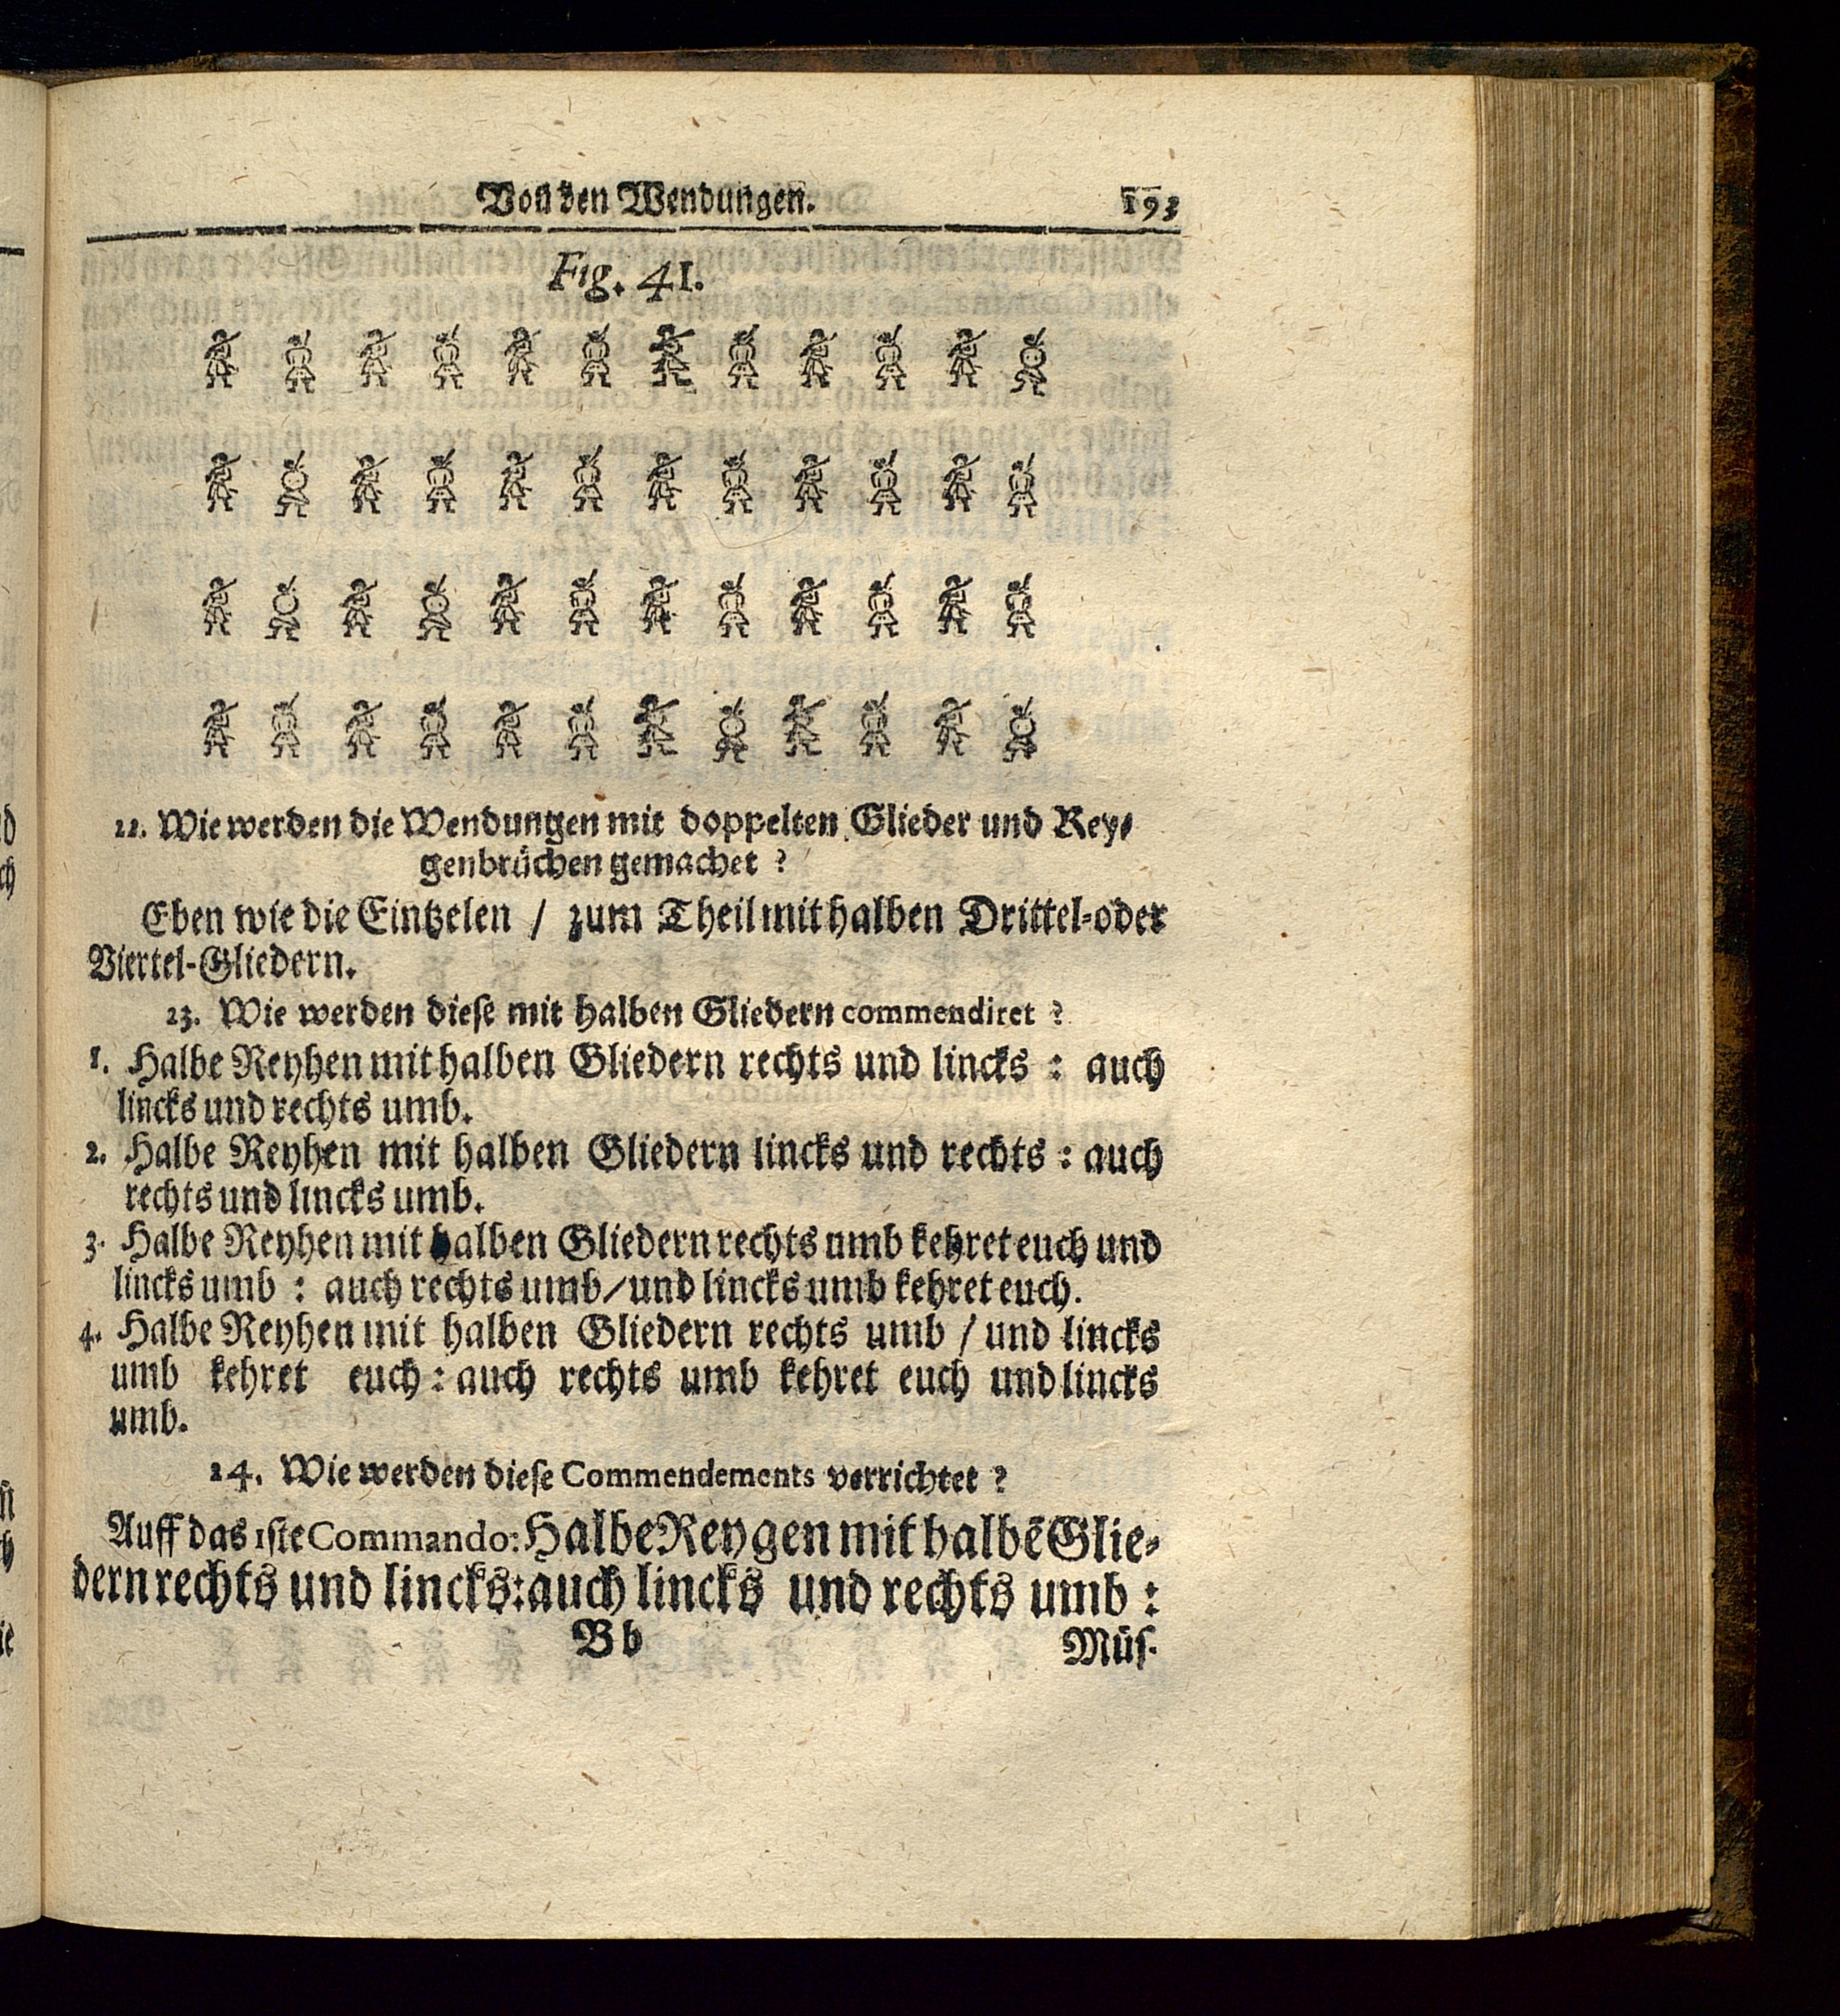 Von den Wendungen. 193
Fig. 41.
22. Wie werden die Wendungen mit doppelten Glieder und Rey-
genbrüchen gemachet?
Eben wie die Eintzelen / zum Theil mit halben Drittel-oder
Viertel-Gliedern.
23. Wie werden diese mit halben Gliedern commendiret?
1. Halbe Reyhen mit halben Gliedern rechts und lincks : auch
lincks und rechts umb.
2. Halbe Reyhen mit halben Gliedern lincks und rechts : auch
rechts und lincks umb.
3. Halbe Reyhen mit halben Gliedern rechts umb kehret euch und
lincks umb : auch rechts umb / und lincks umb kehret euch.
4. Halbe Reyhen mit halben Gliedern rechts umb / und lincks
umb kehret euch : auch rechts umb kehret euch und lincks
umb.
24. Wie werden diese Commendements verrichtet?
Auff das 1ste Commando: Halbe Reygen mit halbē Glie-
dern rechts und lincks: auch lincks und rechts umb :
Bb Müs-